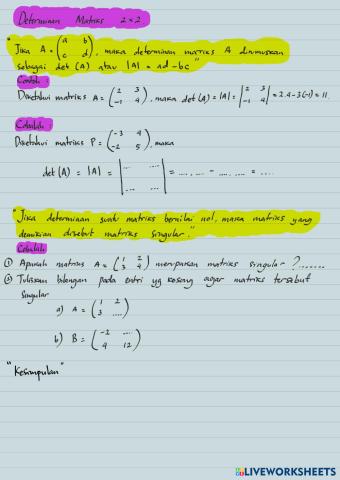 Determinan Matriks 2×2
"Jika A = (a b; c d), maka determinan matriks A dirumuskan
sebagai det (A) atau |A| = ad - bc"
Contoh :
Diketahui matriks A = (2 3; -1 4), maka det (A) = |A| = |2 3; -1 4| = 2.4 - 3(-1) = 11.
Cobalah :
Diketahui matriks P = (-3 4; -2 5), maka
det (A) = |A| = |.... ....; .... ....| = .... .... - .... .... = ....
"Jika determinan suatu matriks bernilai nol, maka matriks yang
demikian disebut matriks singular."
Cobalah
① Apakah matriks A = (1 2; 3 4) merupakan matriks singular ? .......
② Tuliskan bilangan pada entri yg kosong agar matriks tersebut
singular
a) A = (1 2; 3 ....)
b) B = (-2 ....; 4 12)
"Kesimpulan"
LIVEWORKSHEETS